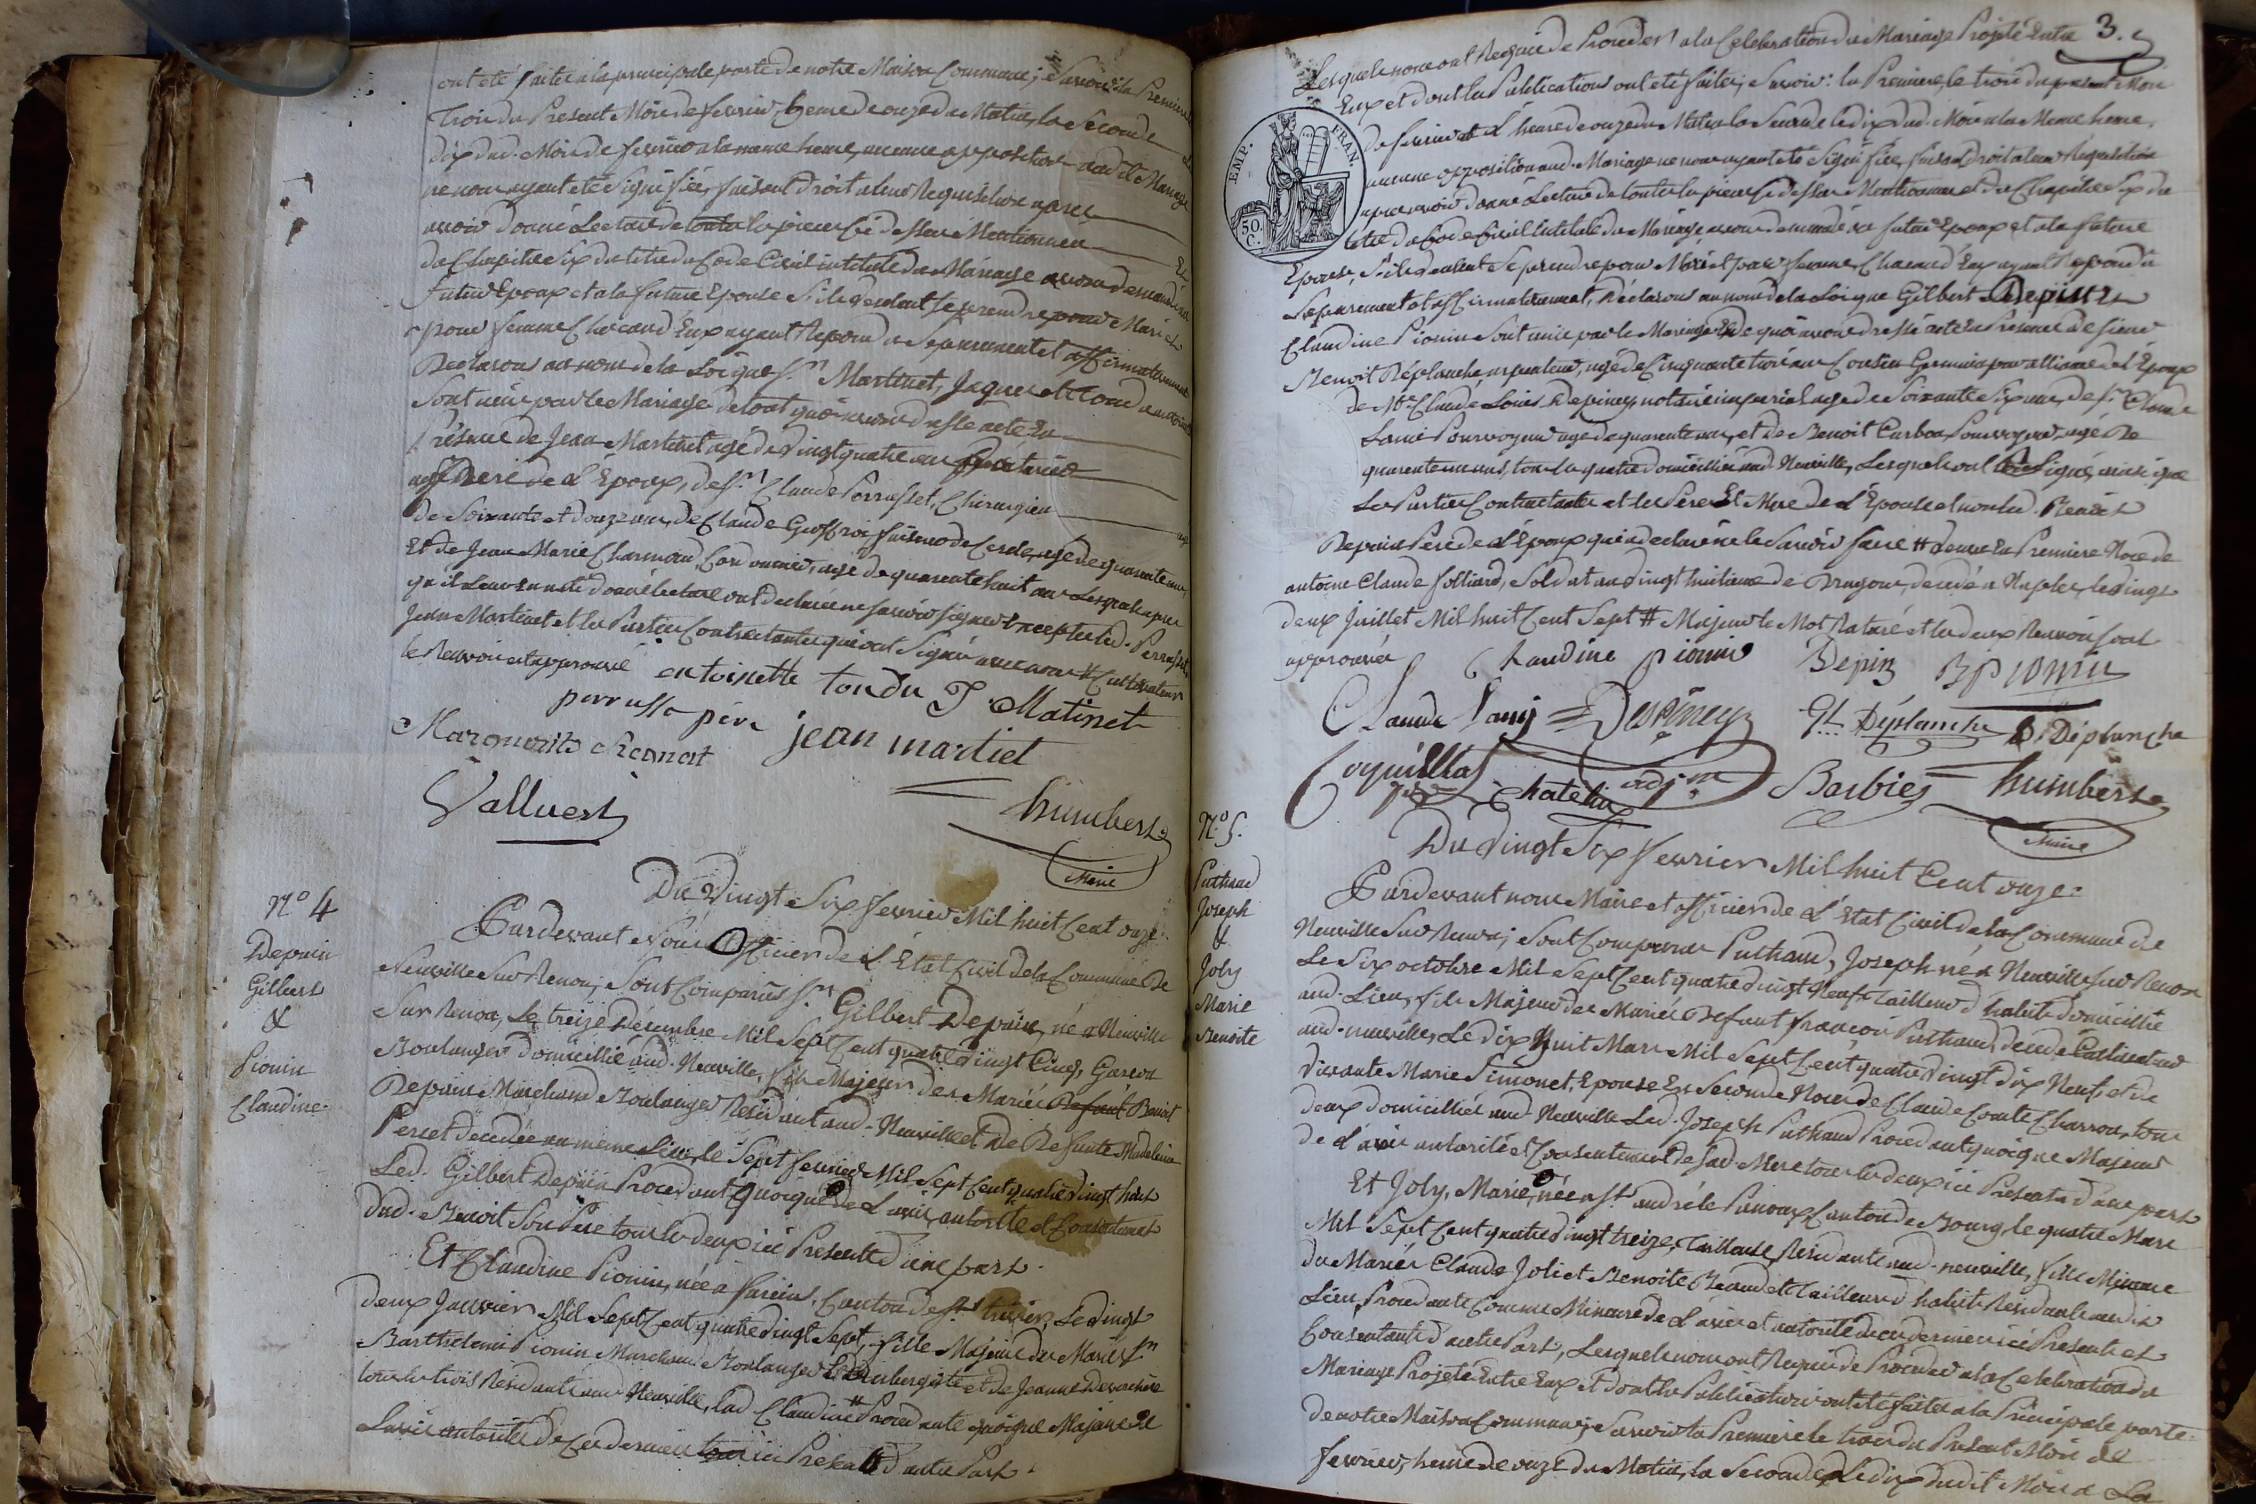 ont eté faites a la principale porte de notre Maison Commune; Savoir la Premiere le
Trois du Present Mois de fevrier, heure de onze du Matin, la Seconde le
dix dud. Mois de fevrier a la meme heure, aucune opposition aud. Mariage
ne nous ayant eté Signifiée, faisant droit a leur Requisition apres
avoir donné Lecture de toutes les pieces Ci dessus Mentionnées Et
du Chapitre Six du titre du Code Civil intitulé du Mariage avons demandé au
futur Epoux et a la future Epouse S'ils veulent se prendre pour Mari et
pour femme Chacun d'Eux ayant Repondu Separement et affirmativement
Declarons au nom de la Loi que Sr. Martinet, Jaques et Tondu antoinette
Sont unis par le Mariage de tout quoi avons dressé acte En
présence de Jean Martinet agé de Vingt quatre ans
frere de L'Epoux, de Sr. Claude Perrusset, Chirurgien agé
de Soixante et douze ans, de Claude Geoffroi faiseur de Cercle, agé de quarante ans
Et de Jean Marie Charmond, Cordonnier, agé de quarante huit ans Lesquels apres
qu'il Leur en a eté donné lecture ont declaré ne savoir signer Excepté led. Perrusset,
Jean Martinet et les Parties Contractantes qui ont Signé avec nous # Cultivateur
le Renvoi est approuvé antoinette tondu J. Matinet
perrusse père jean martiet
Marguerite
Valluert humbert
Maire
Du Vingt Six fevrier Mil huit Cent onze.
N° 4
Depuin
Gilbert
&
Pionin
Claudine.
Pardevant Nous Officier de L'Etat Civil de la Commune De
Neuville Sur Renon, Sont Comparus Sr. Gilbert Depuin, né a Neuville
Sur Renon, Le treize Décembre Mil Sept Cent quatre Vingt Cinq, Garcon
Boulanger domicillié aud. Neuville, fils Majeur des Mariés Defunt Benoit
Depuin Marchand Boulanger Residant aud. Neuville et de Defunte Madeleine
Perret decedée au meme Lieu, le Sept fevrier Mil Sept Cent quatre Vingt huit
Led. Gilbert Depuin Procedant quoique de L'avis, autorité et Consentement
dud. Benoit Son Pere tous les deux ici Presents d'une part.
Et Claudine Pionin, née a fareins, Canton de St. trivier, Le Vingt
deux Janvier Mil Sept Cent quatre Vingt Sept, fille Majeure des Mariés Sr.
Barthelemi Pionin Marchand Boulanger et Aubergiste et de Jeanne
tous les trois Residants aud. Neuville, lad. Claudine # Procedante quoique Majeure de
L'avis autorité de Ces derniers tous ici Presents d'autre Part.
3.
Lesquels nous ont Requis de Proceder a la Celebration du Mariage Projeté Entre
Eux et dont les Publications ont eté faites; Savoir: la Premiere, le trois du present Mois
de fevrier a L'heure de onze du Matin la Seconde le dix dud. Mois a la Meme heure,
aucune opposition aud. Mariage ne nous ayant eté Signifiée, faisant droit a leur Requisition
apres avoir donné Lecture de toutes les pieces Ci dessus Mentionnées et du Chapitre Six du
titre du Code Civil Intitulé du Mariage avons demandé au futur Epoux et a la future
Epouse, S'ils veulent Se prendre pour Mari et pour femme, Chacun d'Eux ayant Repondu
Separement et affirmativement, Declarons au nom de la Loi que Gilbert Depuin et
Claudine Pionin Sont unis par le Mariage de quoi avons dressé acte En Presence de Sieur
Benoit Déplanche arpenteur, agé de Cinquante trois ans Cousin Germain par alliance de L'Epoux
de Me. Claude Louis Depiney, notaire imperial agé de Soixante Six ans, de Sr. Claude
Lanié Pourvoyeur agé de quarante ans, et de Benoit Curbon Pourvoyeur, agé De
quarente un ans, tous les quatre domicilliés aud. Neuville, Lesquels ont Signé ainsi que
Les Parties Contractantes et les Pere Et Mere de L'Epouse et non led. Benoit
Depuin Pere de L'Epoux qui a declaré ne le Savoir faire # Veuve En Premiere Noce de
antoine Claude folliard, Soldat au Vingt huitieme de Dragons, decedé a Naples, le Vingt
deux Juillet Mil huit Cent Sept # Majeur le Mot Raturé et les deux Renvois sont
approuvés Claudine Pionin Depin B Pionin
EMP. FRAN.
50. C.
Claude Lanié Despiney Déplanche B. Déplanche
Chatelin adj. Barbier humbert
Maire
Du Vingt Six fevrier Mil huit Cent onze.
N° 5.
Puthaud
Joseph
&
Joly
Marie
Benoite
Pardevant nous Maire et officier de L'Etat Civil de la Commune de
Neuville Sur Renon; Sont Comparus Puthaud, Joseph né a Neuville Sur Renon
Le Six octobre Mil Sept Cent quatre Vingt Neuf, Tailleur d'habits domicillié
aud. Lieu, fils Majeur des Mariés Defunt françois Puthaud, decedé Cultivateur
aud. neuville, Le Dix Huit Mars Mil Sept Cent quatre Vingt dix Neuf, et de
Vivante Marie Simonet, Epouse En Seconde Noce de Claude Comte Charron, tous
deux domicilliés aud. Neuville Led. Joseph Puthaud Procedant quoique Majeur
de L'avis autorité et Consentement de Sad. Mere tous les deux ici Presents d'une part
Et Joly, Marie, née a St. andré le Panoux Canton de Bourg, le quatre Mars
Mil Sept Cent quatre Vingt treize, Tailleuse, Residante aud. neuville, fille Mineure
des Mariés Claude Joli et Benoite Beaudet Tailleurs d'habits Residants aud.
Lieu, Procedante Comme Mineure de L'avis et autorité de ces derniers ici Presents et
Consentants d'autre Part, Lesquels nous ont Requis de Proceder a la Celebration du
Mariage Projeté Entre Eux et dont les Publications ont eté faites a la Principale porte
de notre Maison Commune; Savoir la Premiere le trois du Present Mois de
fevrier, heure de onze du Matin, la Seconde Le dix dudit Mois a La